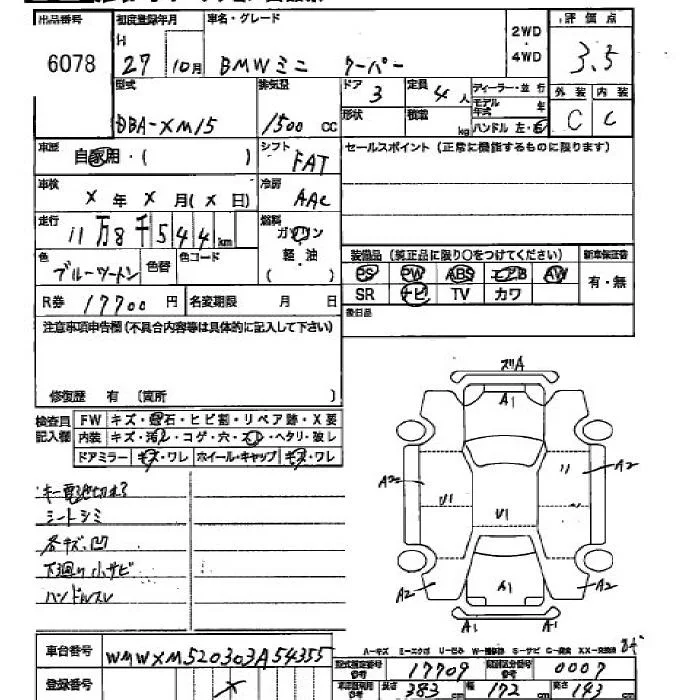 出品番号 初度登録年月 車名・グレード 2WD・4WD 評価点
6078 H 27 10月 BMWミニ クーパー 3.5
型式 排気量 ドア 3 定員 4人 ディーラー・並行 外装 内装
DBA-XM15 1500 cc 形状 積載 kg モデル年式 年 C C
ハンドル 左・右
車歴 自家用・( ) シフト FAT セールスポイント(正常に機能するものに限ります)
車検 X年X月(X日) 冷房 AAC
走行 11万8千544km 燃料 ガソリン
軽・油
( )
色 ブルーツートン 色替 色コード
装備品(純正品に限り○をつけてください) 新車保証書
PS PW ABS エアB AW 有・無
SR ナビ TV カワ
R券 17700円 名変期限 月 日 後日品
注意事項申告欄(不具合内容等は具体的に記入して下さい)
修復歴 有 〔箇所 〕
検査員記入欄 FW キズ・飛石・ヒビ割・リペア跡・X要
内装 キズ・汚レ・コゲ・穴・スレ・ヘタリ・破レ
ドアミラー キズ・ワレ ホイール・キャップ キズ・ワレ
キー電池切れ?
シートシミ
各キズ、凹
下廻り小サビ
ハンドルスレ
ズリA
A1
A2 A2
U1
U1
A2 A1 A2
A1 A1
A-キズ E-エクボ U-凹み W-補修跡 S-サビ C-腐食 XX-交換済
車台番号 WMWXM520303A54355
型式指定番号 17709 類別区分番号 0007
登録番号 X
長さ 383 幅 172 高さ 143